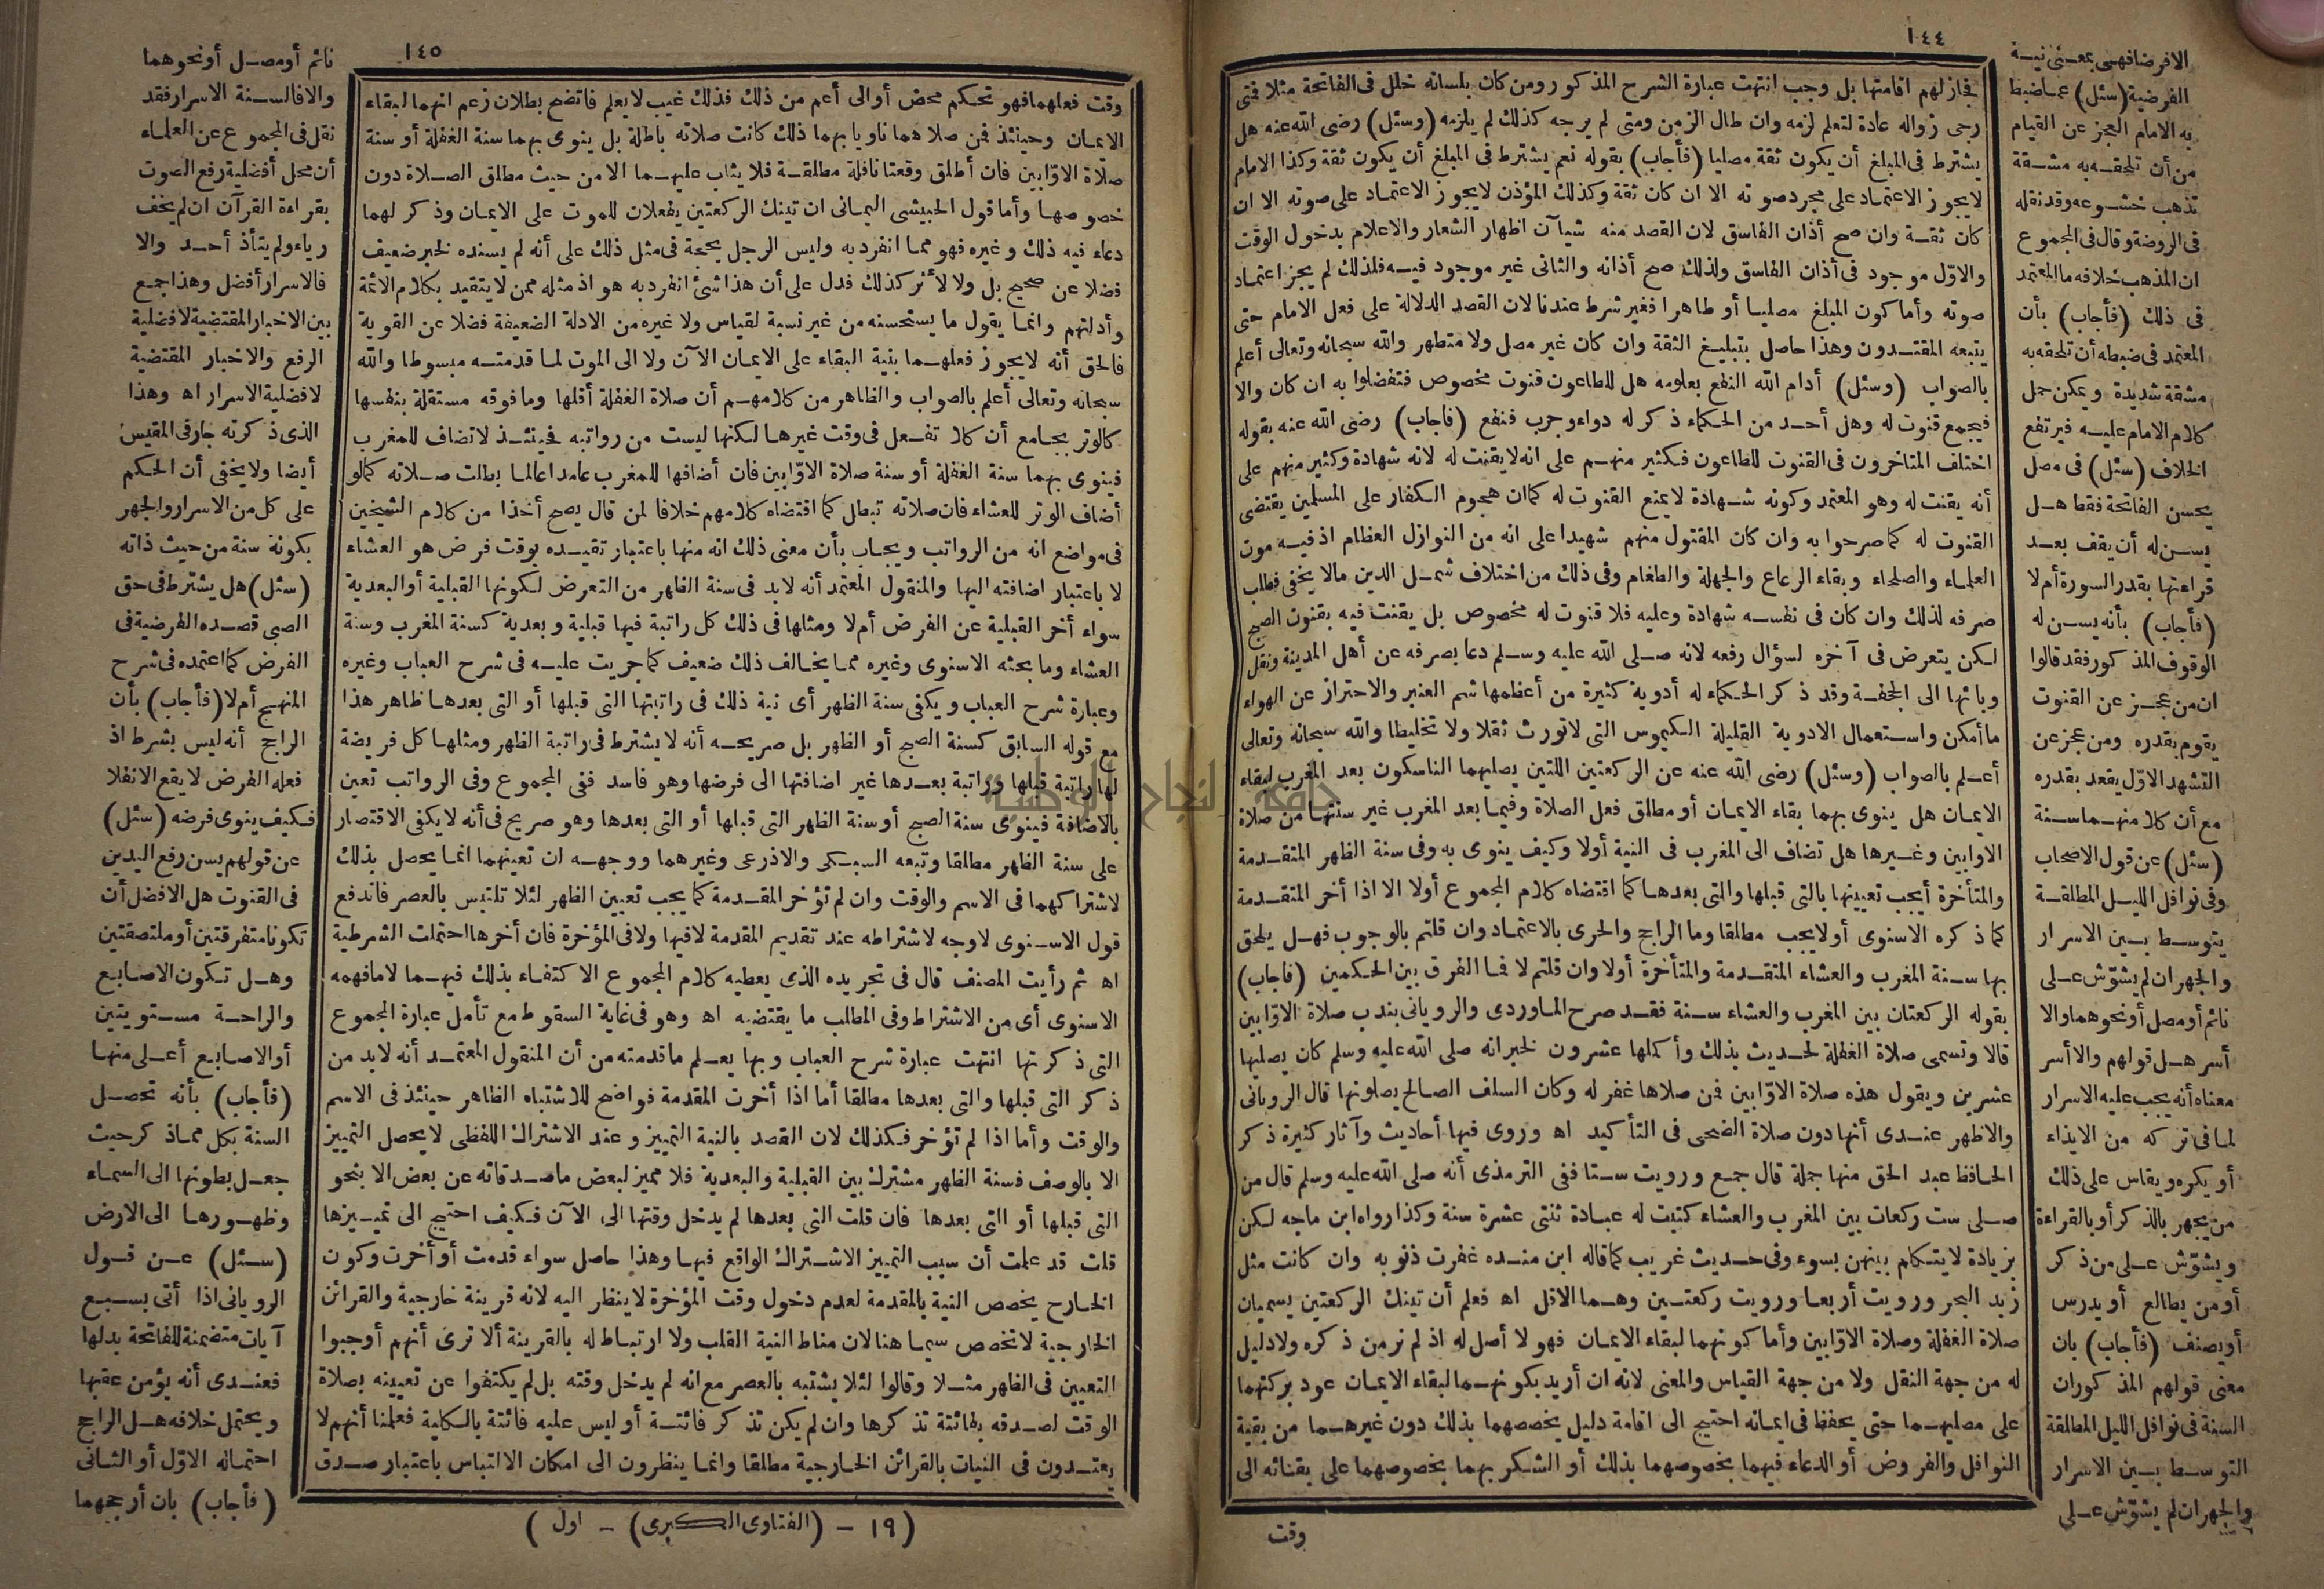 ١٤٤
فجاز لهم اقامتها بل وجب انتهت عبارة الشرح المذكور ومن كان بلسانه خلل فى الفاتحة مثلا فمتى
رجى زواله عادة لتعلم لزمه وان طال الزمن ومتى لم يرجه كذلك لم يلزمه (وسئل) رضى الله عنه هل
يشترط فى المبلغ أن يكون ثقة مصليا (فأجاب) بقوله نعم يشترط فى المبلغ أن يكون ثقة وكذا الامام
لا يجوز الاعتماد على مجرد صوته الا ان كان ثقة وكذلك المؤذن لا يجوز الاعتماد على صوته الا ان
كان ثقة وان صح أذان الفاسق لان القصد منه شيآن اظهار الشعار والاعلام بدخول الوقت
والاوّل موجود فى أذان الفاسق ولذلك صح أذانه والثانى غير موجود فيه فلذلك لم يجز اعتماد
صوته وأما كون المبلغ مصليا أو طاهرا فغير شرط عندنا لان القصد الدلالة على فعل الامام حتى
يتبعه المقتدون وهذا حاصل بتبليغ الثقة وان كان غير مصل ولا متطهر والله سبحانه وتعالى أعلم
بالصواب (وسئل) أدام الله النفع بعلومه هل للطاعون قنوت مخصوص فتفضلوا به ان كان والا
فيجمع قنوت له وهل أحد من الحكماء ذكر له دواء وجرب فنفع (فاجاب) رضى الله عنه بقوله
اختلف المتاخرون فى القنوت للطاعون فكثير منهم على انه لا يقنت له لانه شهادة وكثير منهم على
أنه يقنت له وهو المعتمد وكونه شهادة لا يمنع القنوت له كما ان هجوم الكفار على المسلمين يقتضى
القنوت له كما صرحوا به وان كان المقتول منهم شهيدا على انه من النوازل العظام اذ فيه موت
العلماء والصلحاء وبقاء الرعاع والجهلة والطغام وفى ذلك من اختلاف شمل الدين مالا يخفى فطلب
صرفه لذلك وان كان فى نفسه شهادة وعليه فلا قنوت له مخصوص بل يقنت فيه بقنوت الصبح
لكن يتعرض فى آخره لسؤال رفعه لانه صلى الله عليه وسلم دعا بصرفه عن أهل المدينة ونقل
وبائها الى الجحفة وقد ذكر الحكماء له أدوية كثيرة من أعظمها شم العنبر والاحتراز عن الهواء
ما أمكن واستعمال الادوية القليلة الكيموس التى لا تورث ثقلا ولا تخليطا والله سبحانه وتعالى
أعلم بالصواب (وسئل) رضى الله عنه عن الركعتين اللتين يصليهما الناسكون بعد المغرب لبقاء
الايمان هل ينوى بهما بقاء الايمان أو مطلق فعل الصلاة وفيما بعد المغرب غير سنتها من صلاة
الاوابين وغيرها هل تضاف الى المغرب فى النية أولا وكيف ينوى به وفى سنة الظهر المتقدمة
والمتأخرة أيجب تعيينها بالتى قبلها والتى بعدها كما اقتضاه كلام المجموع أولا الا اذا أخر المتقدمة
كما ذكره الاسنوى أو لا يجب مطلقا وما الراجح والحرى بالاعتماد وان قلتم بالوجوب فهل يلحق
بها سنة المغرب والعشاء المتقدمة والمتأخرة أولا وان قلتم لا فما الفرق بين الحكمين (فاجاب)
بقوله الركعتان بين المغرب والعشاء سنة فقد صرح الماوردى والرويانى بندب صلاة الاوّابين
قالا وتسمى صلاة الغفلة لحديث بذلك وأكملها عشرون لخبر انه صلى الله عليه وسلم كان يصليها
عشرين ويقول هذه صلاة الاوّابين فمن صلاها غفر له وكان السلف الصالح يصلونها قال الرويانى
والاظهر عندى أنها دون صلاة الضحى فى التأكيد اه وروى فيها أحاديث وآثار كثيرة ذكر
الحافظ عبد الحق منها جملة قال جمع ورويت ستا ففى الترمذى أنه صلى الله عليه وسلم قال من
صلى ست ركعات بين المغرب والعشاء كتبت له عبادة ثنتى عشرة سنة وكذا رواه ابن ماجه لكن
بزيادة لا يتكلم بينهن بسوء وفى حديث غريب كما قاله ابن منده غفرت ذنوبه وان كانت مثل
زبد البحر ورويت أربعا ورويت ركعتين وهما الاقل اه فعلم أن تينك الركعتين يسميان
صلاة الغفلة وصلاة الاوّابين وأما كونهما لبقاء الايمان فهو لا أصل له اذ لم نر من ذكره ولا دليل
له من جهة النقل ولا من جهة القياس والمعنى لانه ان أريد بكونهما لبقاء الايمان عود بركتهما
على مصليهما حتى يحفظ فى ايمانه احتيج الى اقامة دليل يخصصهما بذلك دون غيرهما من بقية
النوافل والفروض أو الدعاء فيهما بخصوصهما بذلك أو الشكر بهما بخصوصهما على بقائه الى
وقت
الا فرضا فهى بمعنى نية
الفرضية (سئل) عما ضبط
به الامام العجز عن القيام
من أن تلحقه به مشقة
تذهب خشوعه وقد نقله
فى الروضة وقال فى المجموع
ان المذهب خلافه ما المعتمد
فى ذلك (فأجاب) بأن
المعتمد فى ضبطه أن تلحقه به
مشقة شديدة ويمكن حمل
كلام الامام عليه فيرتفع
الخلاف (سئل) فى مصل
يحسن الفاتحة فقط هل
يسن له أن يقف بعد
قراءتها بقدر السورة أم لا
(فأجاب) بأنه يسن له
الوقوف المذكور فقد قالوا
ان من عجز عن القنوت
يقوم بقدره ومن عجز عن
التشهد الاوّل يقعد بقدره
مع أن كلا منهما سنة
(سئل) عن قول الاصحاب
وفى نوافل الليل المطلقة
يتوسط بين الاسرار
والجهر ان لم يشوّش على
نائم أو مصل أو نحوهما والا
أسر هل قولهم والا أسر
معناه أنه يجب عليه الاسرار
لما فى تركه من الايذاء
أو يكره ويقاس على ذلك
من يجهر بالذكر أو بالقراءة
ويشوّش على من ذكر
أو من يطالع أو يدرس
أو يصنف (فأجاب) بان
معنى قولهم المذكور ان
السنة فى نوافل الليل المطلقة
التوسط بين الاسرار
والجهر ان لم يشوّش على
١٤٥
وقت فعلهما فهو تحكم محض أو الى أعم من ذلك فذلك غيب لا يعلم فاتضح بطلان زعم انهما لبقاء
الايمان وحينئذ فمن صلاهما ناويا بهما ذلك كانت صلاته باطلة بل ينوى بهما سنة الغفلة أو سنة
صلاة الاوّابين فان أطلق وقعتا نافلة مطلقة فلا يثاب عليهما الا من حيث مطلق الصلاة دون
خصوصها وأما قول الحبيشى اليمانى ان تينك الركعتين يفعلان للموت على الايمان وذكر لهما
دعاء فيه ذلك وغيره فهو مما انفرد به وليس الرجل بحجة فى مثل ذلك على أنه لم يسنده لخبر ضعيف
فضلا عن صحيح بل ولا لأثر كذلك فدل على أن هذا شئ انفرد به هو اذ مثله ممن لا يتقيد بكلام الائمة
وأدلتهم وانما يقول ما يستحسنه من غير نسبة لقياس ولا غيره من الادلة الضعيفة فضلا عن القوية
فالحق أنه لا يجوز فعلهما بنية البقاء على الايمان الآن ولا الى الموت لما قدمته مبسوطا والله
سبحانه وتعالى أعلم بالصواب والظاهر من كلامهم أن صلاة الغفلة أقلها وما فوقه مستقلة بنفسها
كالوتر بجامع أن كلا تفعل فى وقت غيرها لكنها ليست من رواتبه فحينئذ لا تضاف للمغرب
فينوى بهما سنة الغفلة أو سنة صلاة الاوّابين فان أضافها للمغرب عامدا عالما بطلت صلاته كما لو
أضاف الوتر للعشاء فان صلاته تبطل كما اقتضاه كلامهم خلافا لمن قال يصح أخذا من كلام الشيخين
فى مواضع انه من الرواتب ويجاب بأن معنى ذلك انه منها باعتبار تقيده بوقت فرض هو العشاء
لا باعتبار اضافته اليها والمنقول المعتمد أنه لابد فى سنة الظهر من التعرض لكونها القبلية أو البعدية
سواء أخر القبلية عن الفرض أم لا ومثلها فى ذلك كل راتبة فيها قبلية وبعدية كسنة المغرب وسنة
العشاء وما بحثه الاسنوى وغيره مما يخالف ذلك ضعيف كما جريت عليه فى شرح العباب وغيره
وعبارة شرح العباب ويكفى سنة الظهر أى نية ذلك فى راتبتها التى قبلها أو التى بعدها ظاهر هذا
مع قوله السابق كسنة الصبح أو الظهر بل صريحه أنه لا يشترط فى راتبة الظهر ومثلها كل فريضة
لها راتبة قبلها وراتبة بعدها غير اضافتها الى فرضها وهو فاسد ففى المجموع وفى الرواتب تعين
بالاضافة فينوى سنة الصبح أو سنة الظهر التى قبلها أو التى بعدها وهو صريح فى أنه لا يكفى الاقتصار
على سنة الظهر مطلقا وتبعه السبكى والاذرعى وغيرهما ووجهه ان تعينهما انما يحصل بذلك
لاشتراكهما فى الاسم والوقت وان لم تؤخر المقدمة كما يجب تعيين الظهر لئلا تلتبس بالعصر فاندفع
قول الاسنوى لا وجه لاشتراطه عند تقديم المقدمة لا فيها ولا فى المؤخرة فان أخرها احتملت الشرطية
اه ثم رأيت المصنف قال فى تجريده الذى يعطيه كلام المجموع الاكتفاء بذلك فيهما لا ما فهمه
الاسنوى أى من الاشتراط وفى المطلب ما يقتضيه اه وهو فى غاية السقوط مع تأمل عبارة المجموع
التى ذكرتها انتهت عبارة شرح العباب وبها يعلم ما قدمته من أن المنقول المعتمد أنه لابد من
ذكر التى قبلها والتى بعدها مطلقا أما اذا أخرت المقدمة فواضح للاشتباه الظاهر حينئذ فى الاسم
والوقت وأما اذا لم تؤخر فكذلك لان القصد بالنية التمييز وعند الاشتراك اللفظى لا يحصل التمييز
الا بالوصف فسنة الظهر مشترك بين القبلية والبعدية فلا مميز لبعض ماصدقاته عن بعض الا بنحو
التى قبلها أو التى بعدها فان قلت التى بعدها لم يدخل وقتها الى الآن فكيف احتيج الى تمييزها
قلت قد علمت أن سبب التمييز الاشتراك الواقع فيها وهذا حاصل سواء قدمت أو أخرت وكون
الخارج يخصص النية بالمقدمة لعدم دخول وقت المؤخرة لا ينظر اليه لانه قرينة خارجية والقرائن
الخارجية لا تخصص سيما هنا لان مناط النية القلب ولا ارتباط له بالقرينة ألا ترى أنهم أوجبوا
التعيين فى الظهر مثلا وقالوا لئلا يشتبه بالعصر مع انه لم يدخل وقته بل لم يكتفوا عن تعيينه بصلاة
الوقت لصدقه بفائتة تذكرها وان لم يكن تذكر فائتة أو ليس عليه فائتة بالكلية فعلمنا أنهم لا
يعتدون فى النيات بالقرائن الخارجية مطلقا وانما ينظرون الى امكان الالتباس باعتبار صدق
(١٩ - (الفتاوى الكبرى) - اول )
نائم أو مصل أو نحوهما
والا فالسنة الاسرار فقد
نقل فى المجموع عن العلماء
أن محل أفضلية رفع الصوت
بقراءة القرآن ان لم يخف
رياء ولم يتأذ أحد والا
فالاسرار أفضل وهذا جمع
بين الاخبار المقتضية لافضلية
الرفع والاخبار المقتضية
لافضلية الاسرار اه وهذا
الذى ذكرته جار فى المقيس
أيضا ولا يخفى أن الحكم
على كل من الاسرار والجهر
بكونه سنة من حيث ذاته
(سئل) هل يشترط فى حق
الصبى قصده الفرضية فى
الفرض كما اعتمده فى شرح
المنهج أم لا (فأجاب) بأن
الراجح أنه ليس بشرط اذ
فعله الفرض لا يقع الا نفلا
فكيف ينوى فرضه (سئل)
عن قولهم يسن رفع اليدين
فى القنوت هل الافضل أن
تكونا متفرقتين أو ملتصقتين
وهل تكون الاصابع
والراحة مستويتين
أو الاصابع أعلى منها
(فأجاب) بأنه تحصل
السنة بكل مما ذكر حيث
جعل بطونها الى السماء
وظهورها الى الارض
(سئل) عن قول
الرويانى اذا أتى بسبع
آيات متضمنة للفاتحة بدلها
فعندى أنه يؤمن عقبها
ويحتمل خلافه هل الراجح
احتماله الاوّل أو الثانى
(فأجاب) بان أرجحهما
جامعة النجاح الوطنية